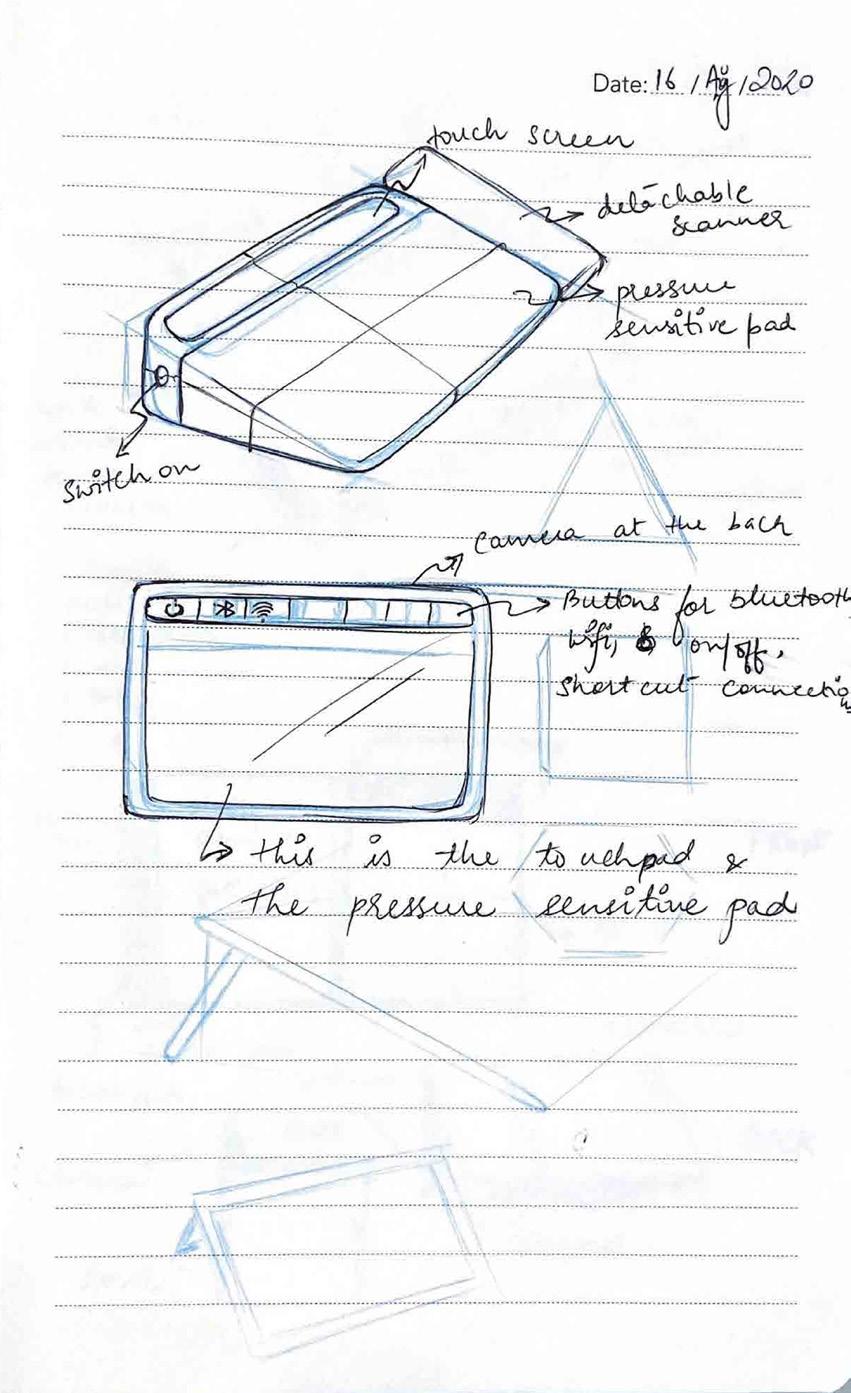 Date: 16 / Aug / 2020
touch screen
detachable
scanner
pressure
sensitive pad
Switch on
Camera at the back
Buttons for bluetooth
wifi, & on/off,
Short cut connections
this is the touchpad &
the pressure sensitive pad